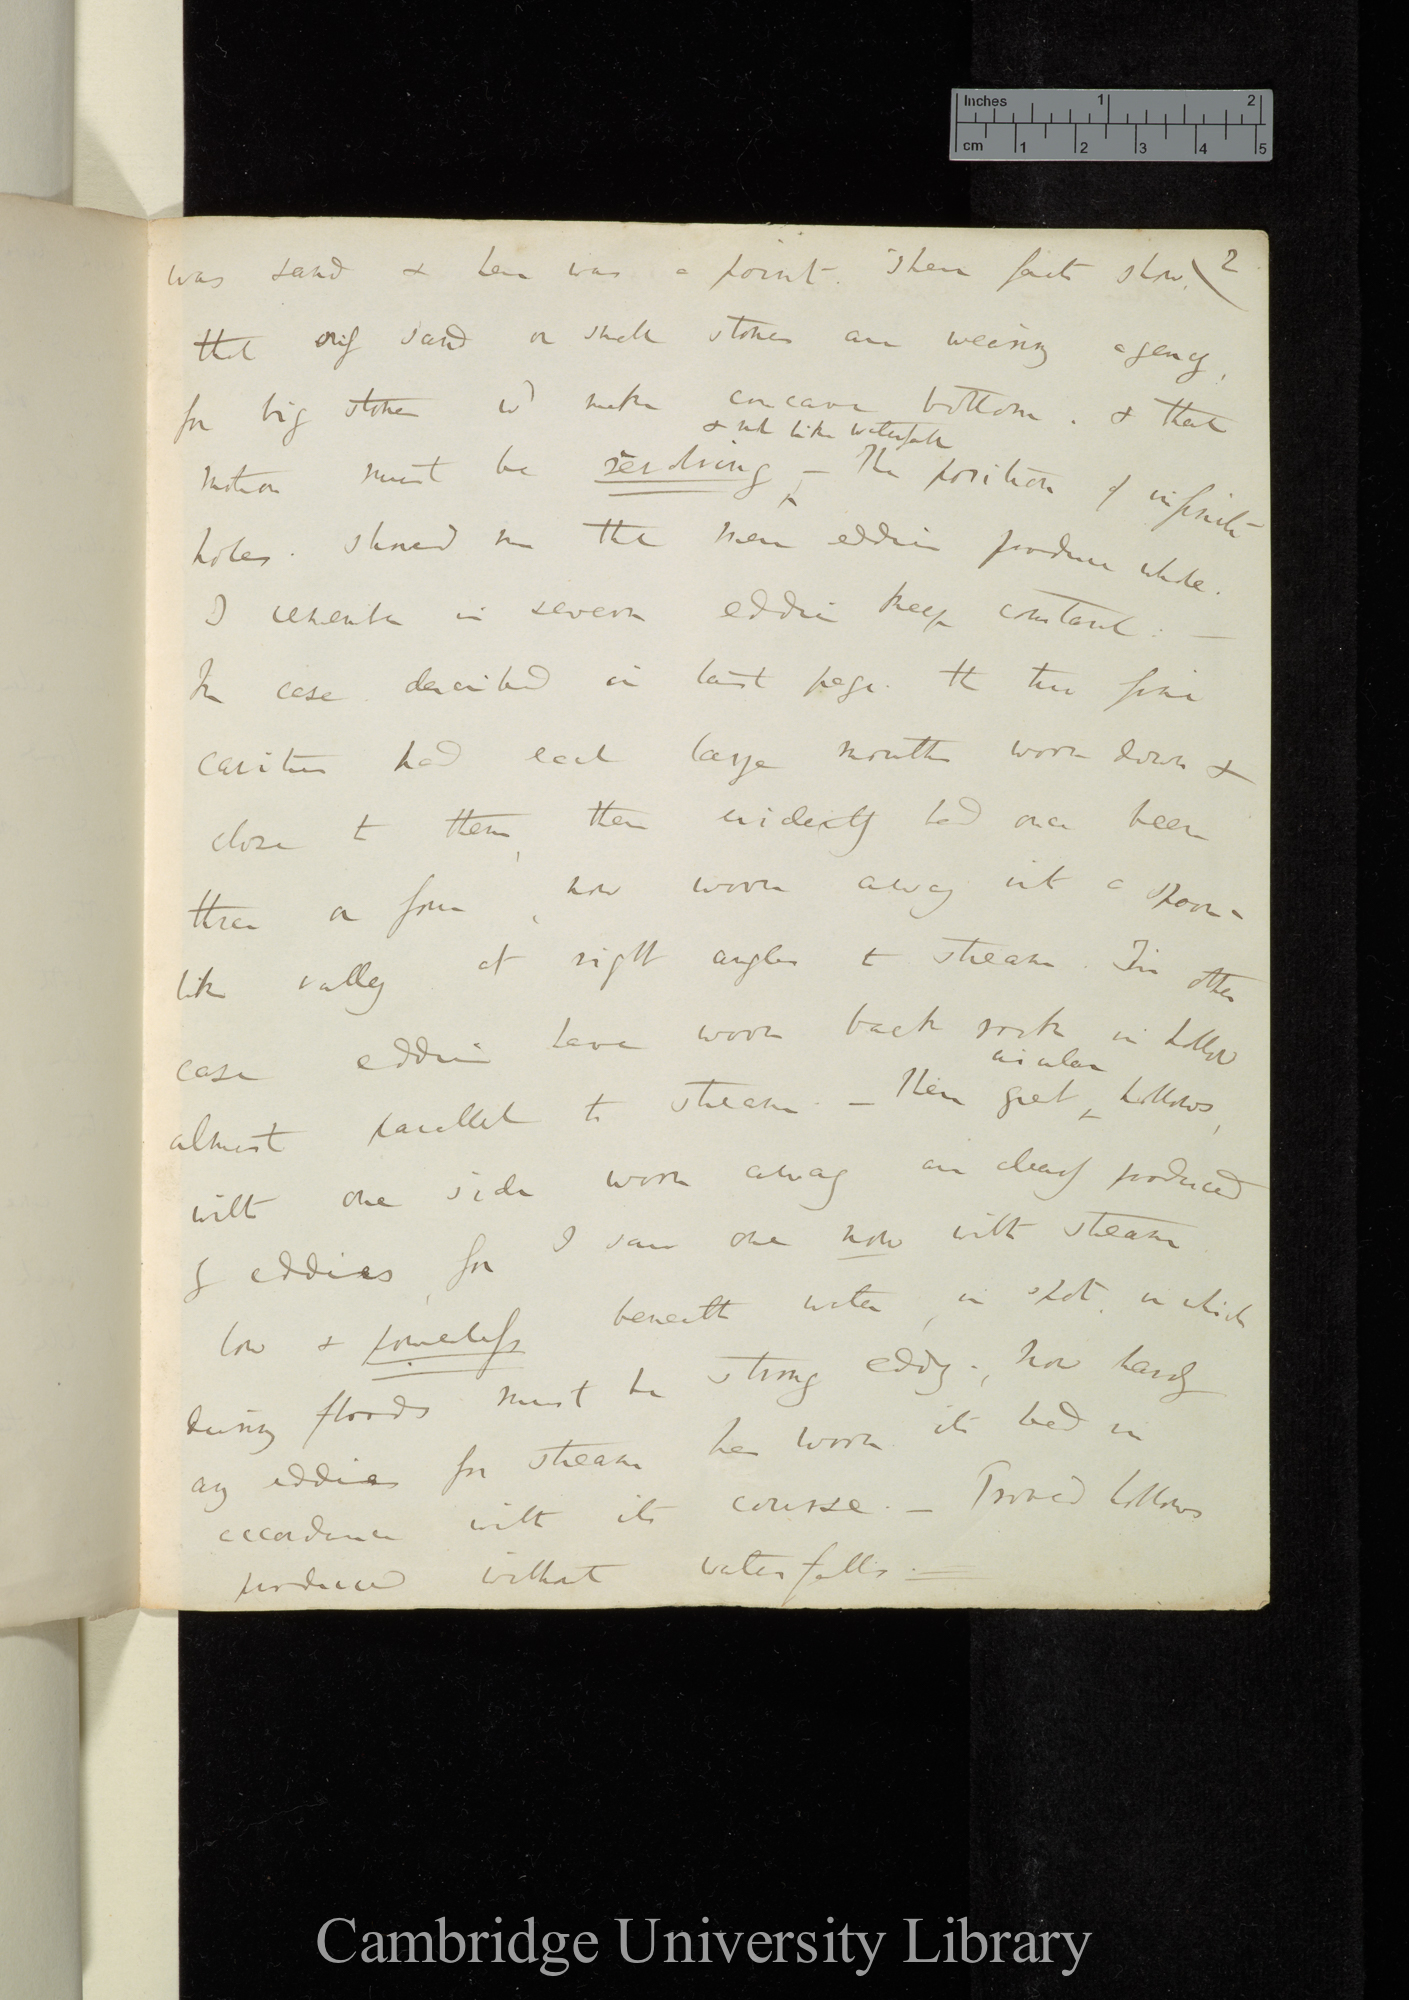 Inches 1 2
cm 1 2 3 4 5
2
was sand & here was a point. These facts show
that only sand or small stones are wearing agency,
for big stones wd make concave bottom. & that
& not like waterfalls
motion must be revolving — The position of infinite
holes. showed me that mere eddies produce whole.
I remember in severn eddies keep constant. —
In case described in last page. the two fine
cavities had each large mouths worn down &
close to them, there evidently had once been
three or four, now worn away into a spoon-
like valley at right angles to stream. In other
case eddies have worn back rock in hollow
circular
almost parallel to stream. — These great hollows,
with one side worn away are clearly produced
by eddies, for I saw one now with stream
low & powerless beneath water, in spot. in which
during floods must be strong eddy., now hardly
any eddies for stream has worn its bed in
accordance with its course. — Proved hollows
produced without waterfalls. —
Cambridge University Library